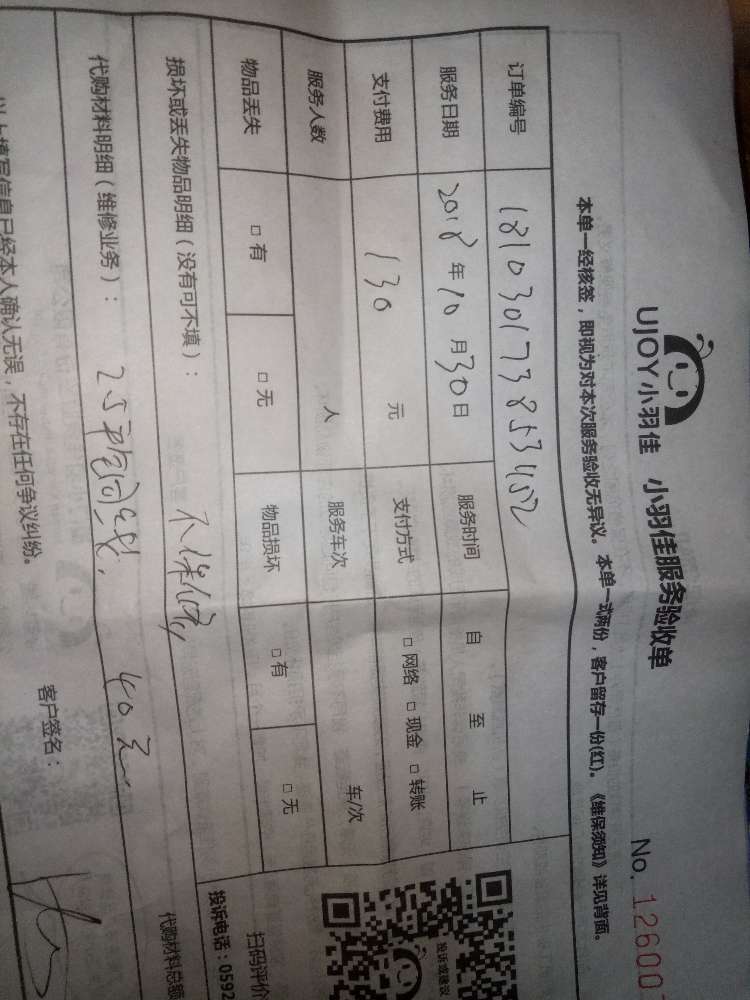 UJOY小羽佳 小羽佳服务验收单
No. 12600
本单一经核签，即视为对本次服务验收无异议。本单一式两份，客户留存一份(红)。《维保须知》详见背面。
订单编号 181030173853452
服务日期 2018年10月30日 服务时间 自 至 止
支付费用 130 元 支付方式 □网络 □现金 □转账
服务人数 人 服务车次 车/次
物品丢失 □有 □无 物品损坏 □有 □无
损坏或丢失物品明细（没有可不填）： 不保修
代购材料明细（维修业务）： 40元
代购材料总额
以上填写信息已经本人确认无误，不存在任何争议纠纷。
客户签名：
投诉或建议
扫码评价
投诉电话：0592